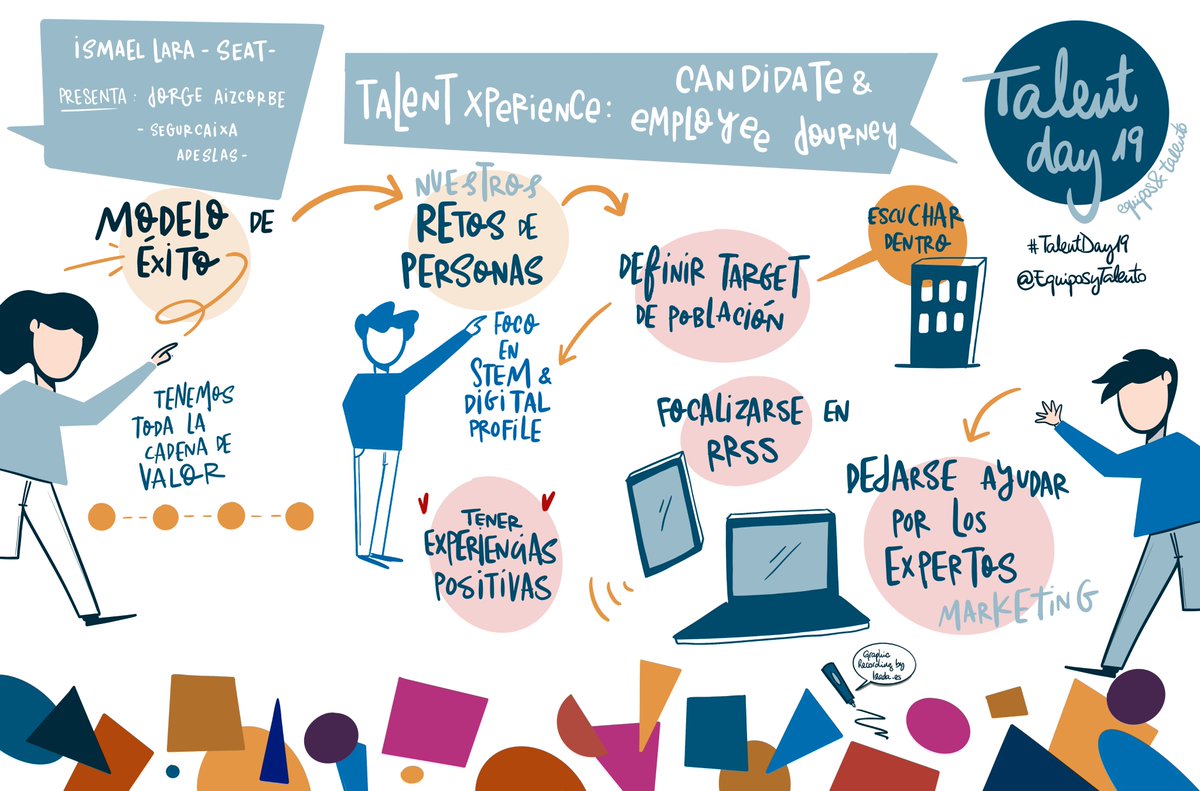 ISMAEL LARA - SEAT -
PRESENTA: JORGE AIZCORBE
- SEGURCAIXA
ADESLAS -
TALENT XPERIENCE:
CANDIDATE &
EMPLOYEE JOURNEY
Talent
day 19
equipos&talento
#TalentDay19
@EquiposyTalento
MODELO DE
ÉXITO
TENEMOS
TODA LA
CADENA DE
VALOR
NUESTROS
RETOS DE
PERSONAS
FOCO
EN
STEM &
DIGITAL
PROFILE
DEFINIR TARGET
DE POBLACIÓN
ESCUCHAR
DENTRO
FOCALIZARSE EN
RRSS
TENER
EXPERIENCIAS
POSITIVAS
DEJARSE AYUDAR
POR LOS
EXPERTOS
MARKETING
Graphic
Recording by